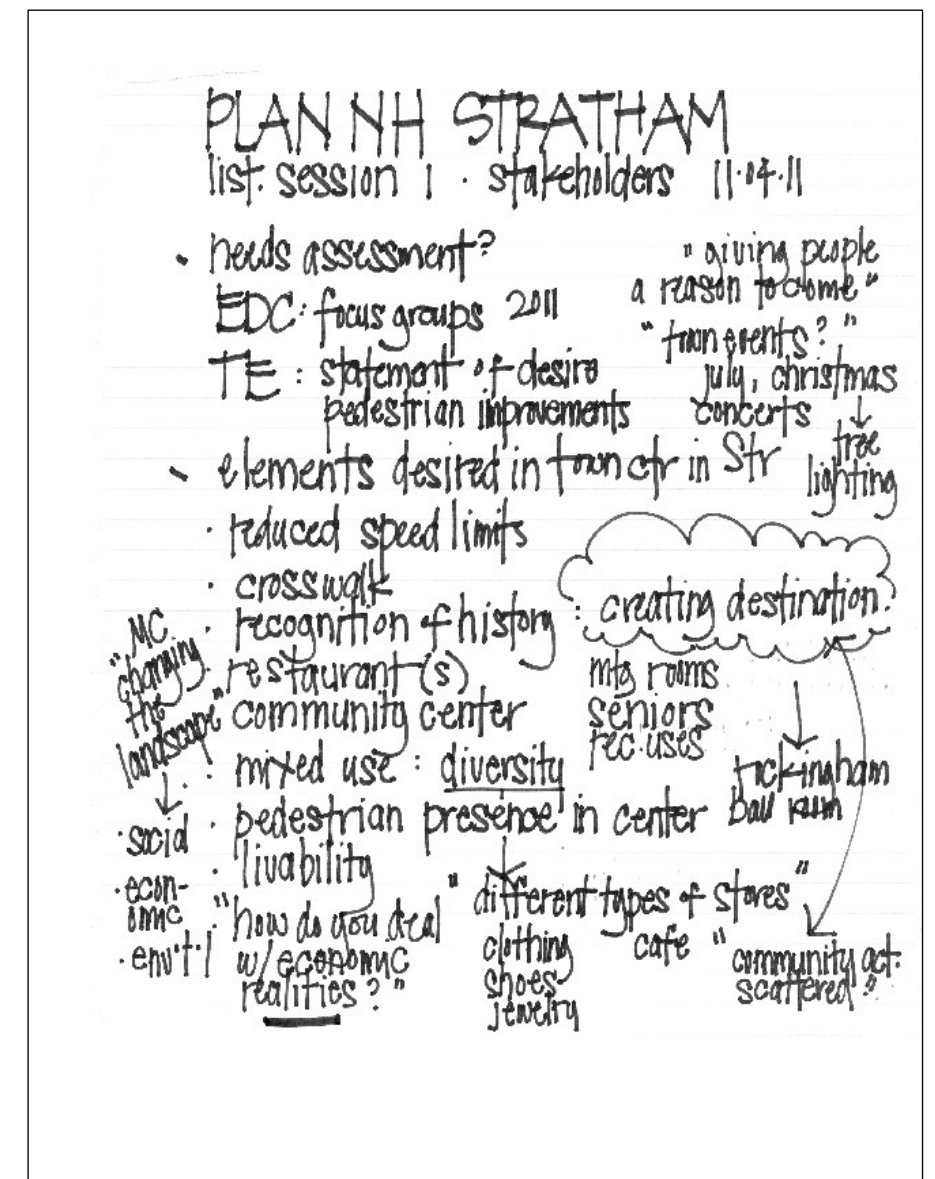 PLAN NH STRATHAM
list. session 1 · stakeholders 11·04·11
needs assessment?
EDC: focus groups 2011
TE: statement of desire
pedestrian improvements
"giving people
a reason to come"
"town events?"
july, christmas
concerts
tree
lighting
elements desired in town ctr in Str
· reduced speed limits
· crosswalk
· recognition of history
: creating destination.
· restaurant(s)
· community center
mtg rooms
seniors
rec. uses
· mixed use : diversity
rockingham
ball room
· pedestrian presence in center
· livability
"MC
changing
the
landscape"
· social
· econ-
omic
· env't'l
"how do you deal
w/ economic
realities?"
"different types of stores"
clothing
shoes
jewelry
cafe
"community act.
scattered?